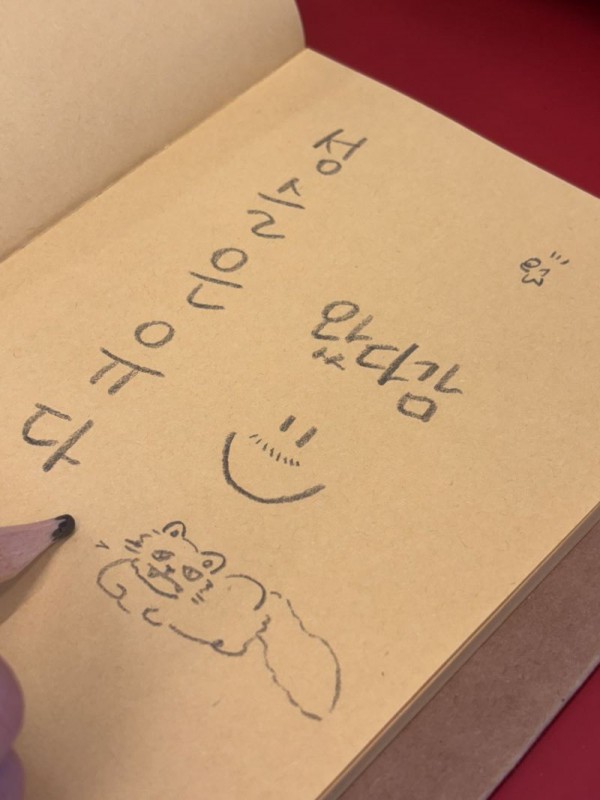 성슬은유다
왔다감